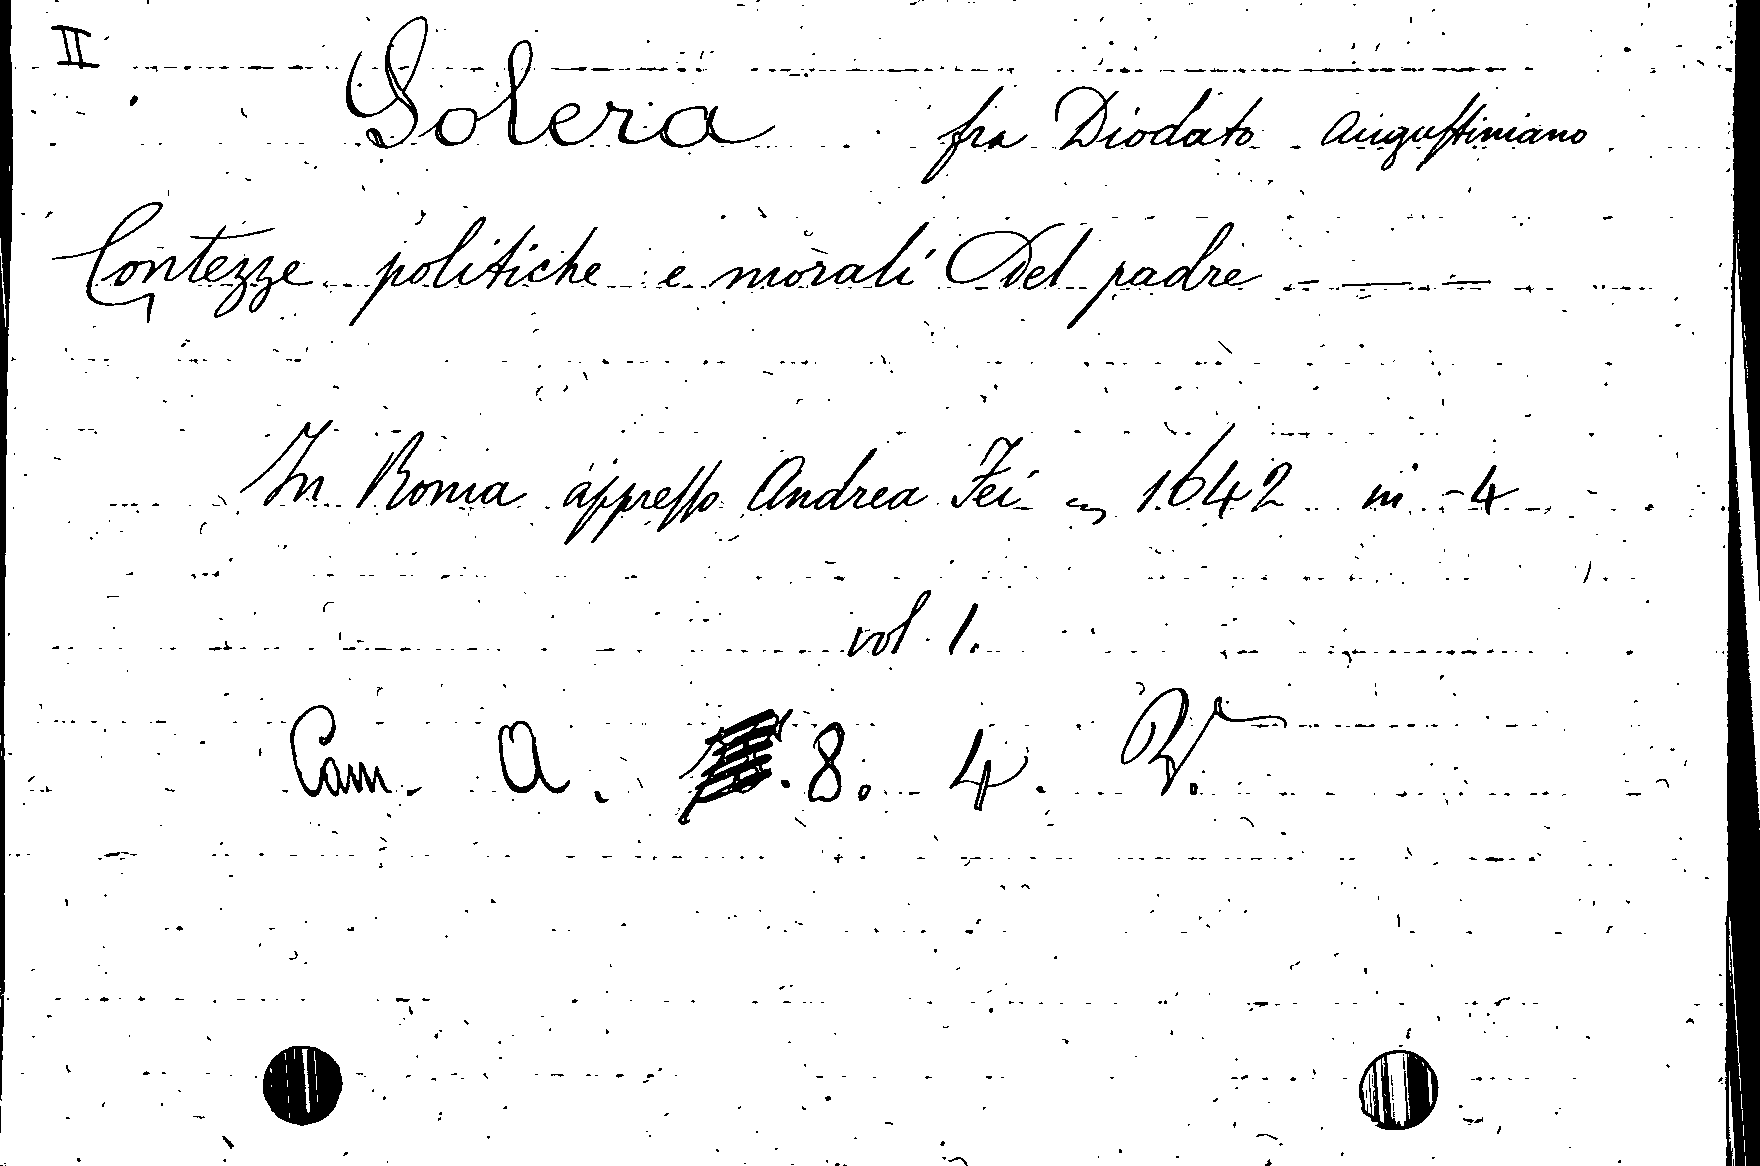 II
Solera fra Diodato Augustiniano
Contezze politiche e morali Del padre — — —
In Roma appresso Andrea Fei 1642 in -4
vol 1.
Cam. A. 8. 4.